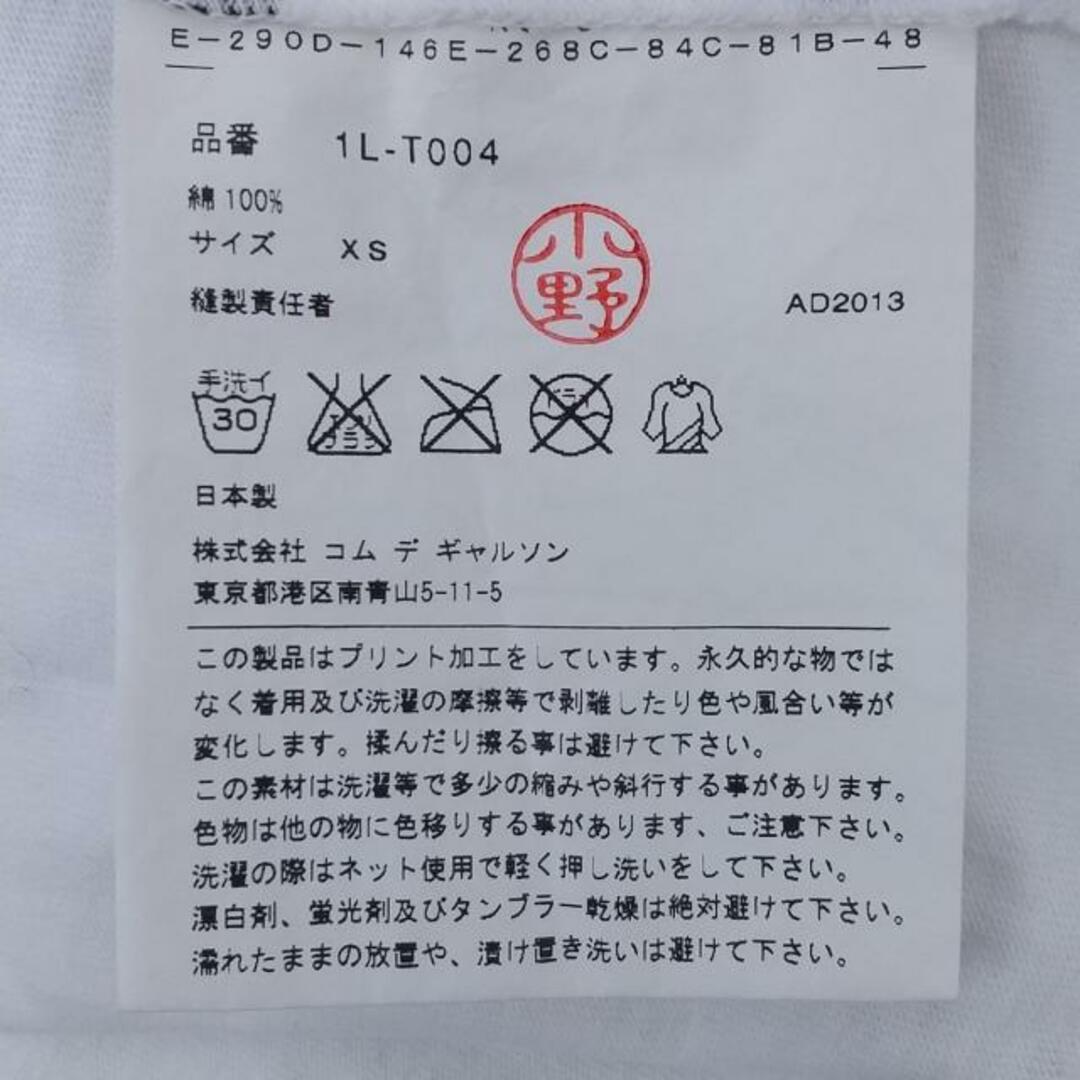 E-290D-146E-268C-84C-81B-48
品番 1L-T004
綿100%
サイズ XS
小野
縫製責任者 AD2013
手洗イ
30
エンソ
サラシ
ドライ
日本製
株式会社 コム デ ギャルソン
東京都港区南青山5-11-5
この製品はプリント加工をしています。永久的な物では
なく着用及び洗濯の摩擦等で剥離したり色や風合い等が
変化します。揉んだり擦る事は避けて下さい。
この素材は洗濯等で多少の縮みや斜行する事があります。
色物は他の物に色移りする事があります、ご注意下さい。
洗濯の際はネット使用で軽く押し洗いをして下さい。
漂白剤、蛍光剤及びタンブラー乾燥は絶対避けて下さい。
濡れたままの放置や、漬け置き洗いは避けて下さい。